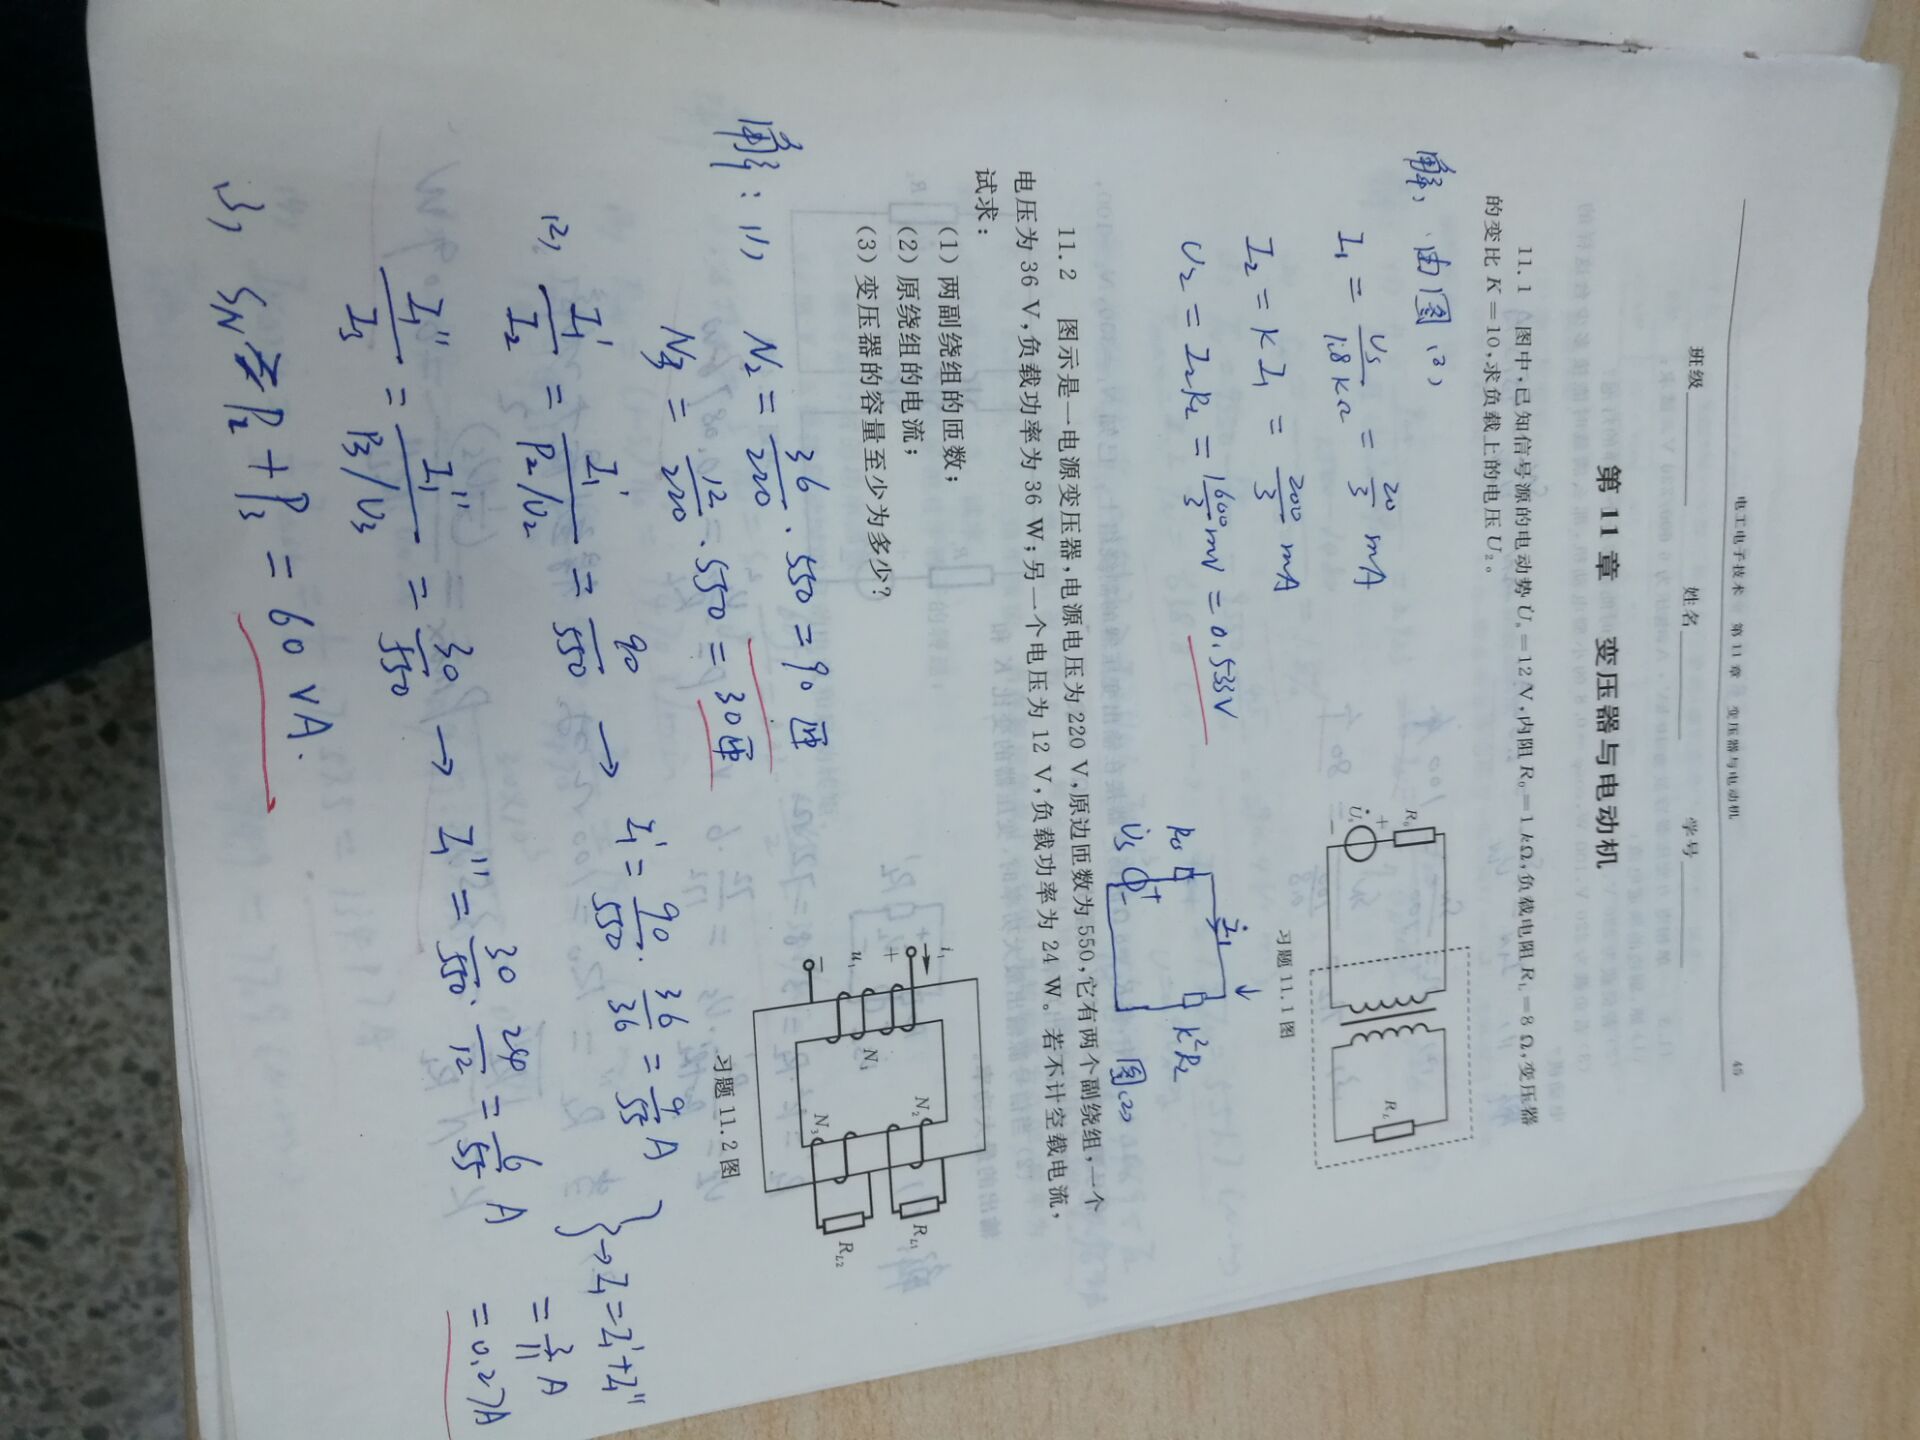 电工电子技术 第11章 变压器与电动机 45
班级 姓名 学号
第11章 变压器与电动机
11.1 图中,已知信号源的电动势 U̇s=12 V,内阻 R₀=1 kΩ,负载电阻 R_L=8 Ω,变压器
的变比 K=10,求负载上的电压U₂。
解: 由图(2)
I₁ = Us/1.8KΩ = 20/3 mA
I₂ = KI₁ = 200/3 mA
U₂ = I₂R₂ = 1600/3 mV = 0.533V
R₀
+
U̇s
−
R_L
习题 11.1 图
İ₁
R₀
K²R₂
U̇s
+
−
图(2)
11.2 图示是一电源变压器,电源电压为 220 V,原边匝数为 550,它有两个副绕组,一个
电压为 36 V,负载功率为 36 W;另一个电压为 12 V,负载功率为 24 W。若不计空载电流,
试求:
(1) 两副绕组的匝数;
(2) 原绕组的电流;
(3) 变压器的容量至少为多少?
i₁
+
u₁
−
N₁
N₂
N₃
R_L1
R_L2
习题 11.2 图
解: (1) N₂ = 36/220 · 550 = 90 匝
N₃ = 12/220 · 550 = 30匝
(2) I₁'/I₂ = I₁'/(P₂/U₂) = 90/550 → I₁' = 90/550 · 36/36 = 9/55 A
I₁''/I₃ = I₁''/(P₃/U₃) = 30/550 → I₁'' = 30/550 · 24/12 = 6/55 A
} → I₁ = I₁' + I₁''
= 3/11 A
= 0.27A
(3) S_N ≥ P₂ + P₃ = 60 VA.